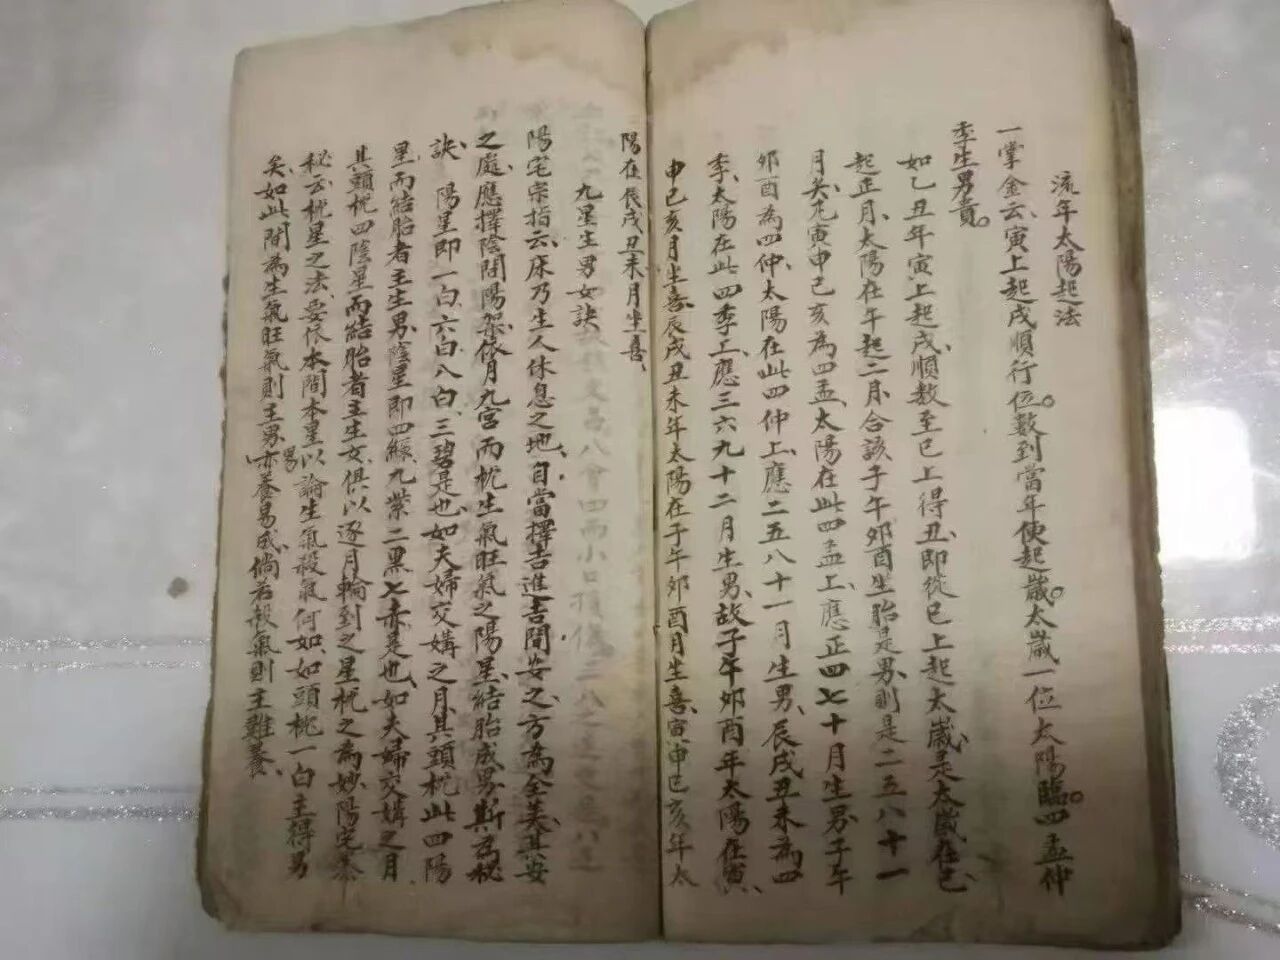 流年太陽起法
一掌金云、寅上起戌順行位。數到當年便起歲。太歲一位太陽臨。四孟仲
季生男貴。
如乙丑年寅上起戌、順數至巳上得丑、即從巳上起太歲、是太歲在巳、
起正月、太陽在午起二月、合該子午夘酉坐胎是男、則是二五八十一
月矣、凡寅申巳亥為四孟、太陽在此四孟上、應正四七十月生男、子午
夘酉為四仲、太陽在此四仲上、應二五八十一月生男、辰戌丑未為四
季、太陽在此四季上、應三六九十二月生男、故子午夘酉年太陽在寅、
申巳亥月坐喜、辰戌丑未年太陽在子午夘酉月生喜、寅申巳亥年太
陽在辰戌丑未月坐喜、
九星生男女訣
陽宅宗指云、床乃生人休息之地、自當擇吉進吉間安之、方為全美、其安
之處、應擇陰間陽架、依月九宮而枕生氣旺氣之陽星、結胎成男、斯為秘
訣、陽星即一白、六白八白、三碧是也、如夫婦交媾之月、其頭枕此四陽
星而結胎者、主生男、陰星即四綠、九紫二黑七赤是也、如夫婦交媾之月
其頭枕四陰星而結胎者主生女、俱以逐月輪到之星枕之為妙、陽宅
秘云、枕星之法、要依本間本星以論生氣殺氣何如、如頭枕一白主得男
矣、如此間為生氣旺氣則主男、亦易養易成、倘若殺氣則主難養、